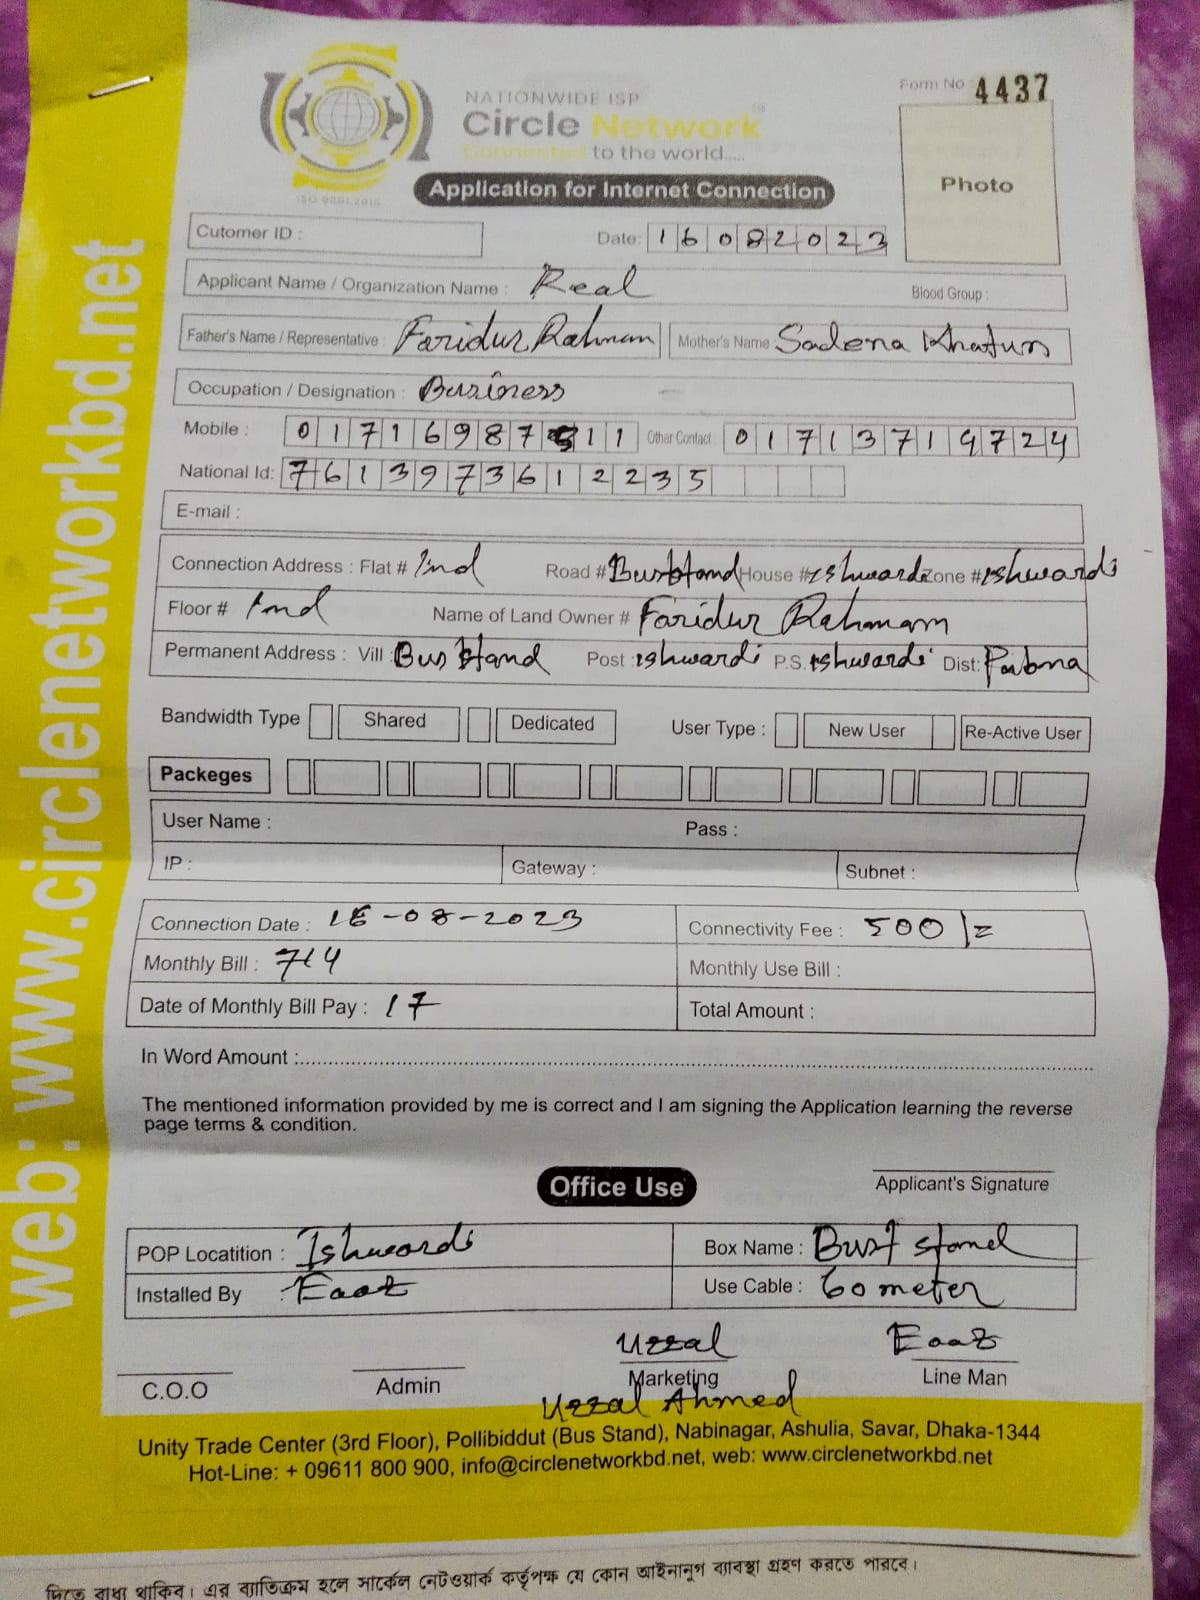 Form No 4437
NATIONWIDE ISP
Circle Network
Connected to the world.....
ISO 9001:2015
Application for Internet Connection
Photo
Cutomer ID :
Date: 16082023
Applicant Name / Organization Name : Real Blood Group :
Father's Name / Representative : Faridur Rahman Mother's Name Sadena Khatun
Occupation / Designation : Business
Mobile : 01716987511 Other Contact 01713719724
National Id: 7613973612235
E-mail :
Connection Address : Flat # 2nd Road # Busstand House # Ishwardi Zone # Ishwardi
Floor # 2nd Name of Land Owner # Faridur Rahmam
Permanent Address : Vill : Bus stand Post : Ishwardi P.S. Ishwardi Dist: Pabna
Bandwidth Type Shared Dedicated User Type : New User Re-Active User
Packeges
User Name : Pass :
IP : Gateway : Subnet :
Connection Date : 16-08-2023 Connectivity Fee : 500/=
Monthly Bill : 714 Monthly Use Bill :
Date of Monthly Bill Pay : 17 Total Amount :
In Word Amount :
The mentioned information provided by me is correct and I am signing the Application learning the reverse
page terms & condition.
Applicant's Signature
Office Use
POP Locatition : Ishwardi Box Name : Bust stand
Installed By : Eaaz Use Cable : 60 meter
Uzzal Eaaz
C.O.O Admin Marketing Line Man
Uzzal Ahmed
Unity Trade Center (3rd Floor), Pollibiddut (Bus Stand), Nabinagar, Ashulia, Savar, Dhaka-1344
Hot-Line: + 09611 800 900, info@circlenetworkbd.net, web: www.circlenetworkbd.net
web: www.circlenetworkbd.net
দিতে বাধ্য থাকিব। এর ব্যতিক্রম হলে সার্কেল নেটওয়ার্ক কর্তৃপক্ষ যে কোন আইনানুগ ব্যবস্থা গ্রহণ করতে পারবে।